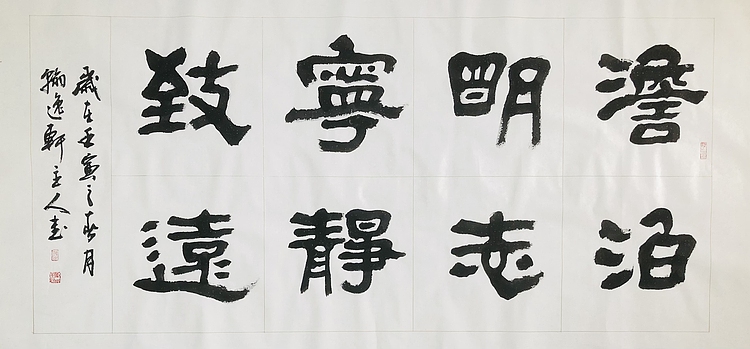 澹泊
明志
寧靜
致遠
歲在壬寅之春月
翰逸軒主人書